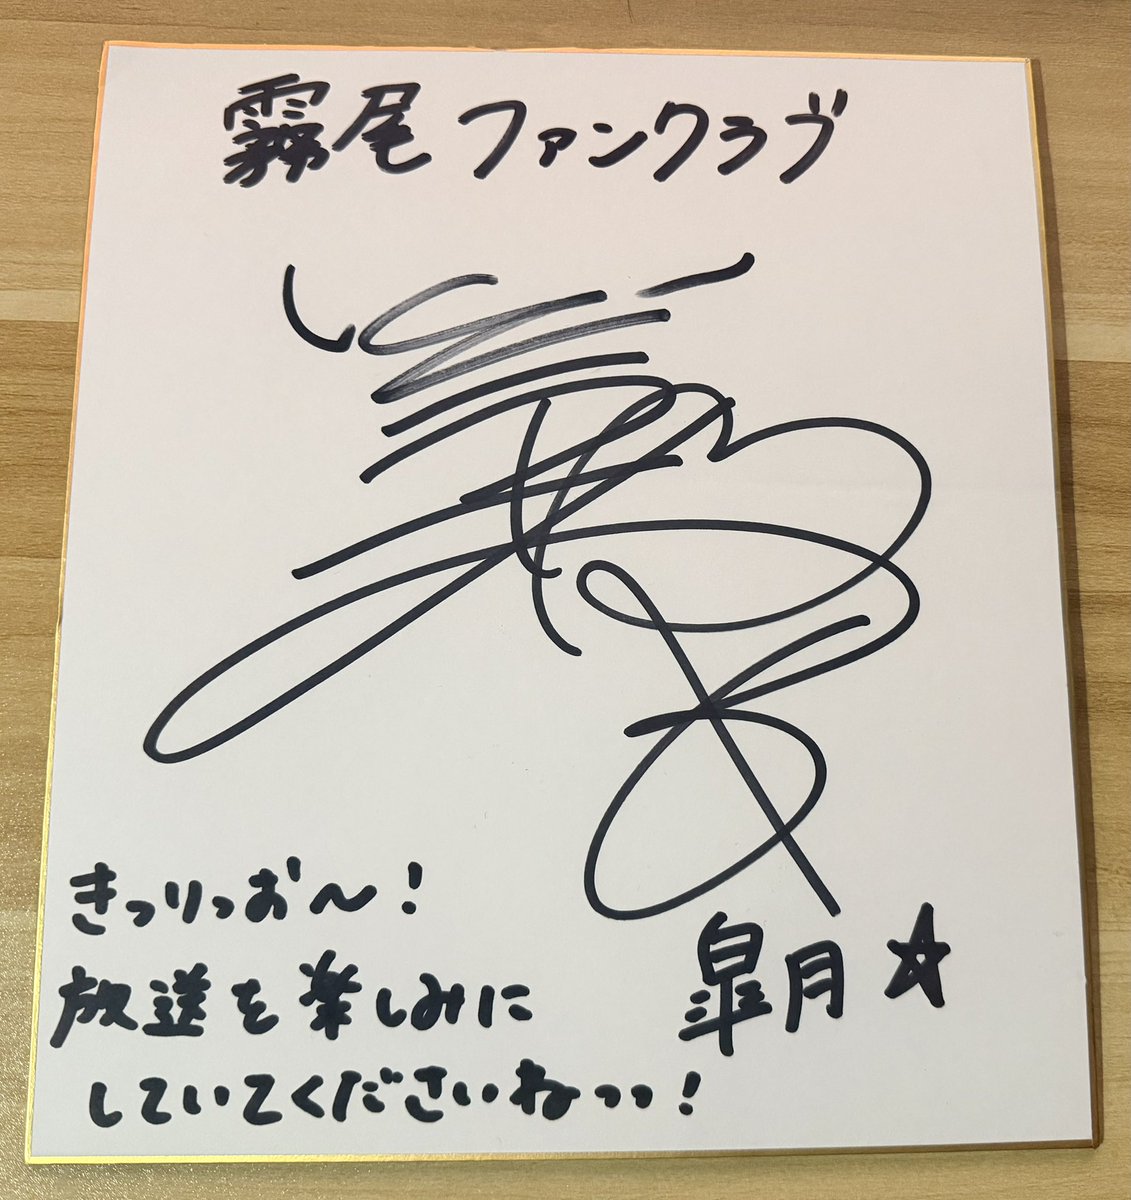 霧尾ファンクラブ
きっりっお〜!
皐月☆
放送を楽しみに
していてくださいねっっ!